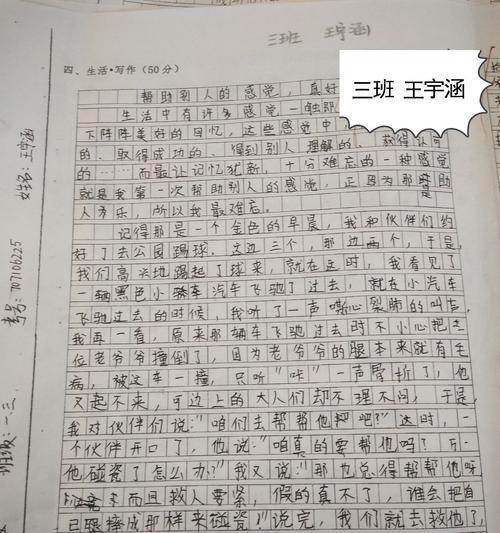 三班 王宇涵
三班 王宇涵
四、生活·写作(50分)
帮助别人的感觉,真好
生活中有许多感觉一触即
下阵阵美好的回忆,这些感觉中,
的、取得成功的、得到别人理解的、获得认可
的……而最让记忆犹新,十分难忘的一种感觉
就是我第一次帮助别人的感觉,正因为那是助
人为乐,所以我最难忘。
记得那是一个金色的早晨,我和伙伴们约
好了去公园踢球。这边三个,那边两个,于是,
我们高兴地踢起了球来,就在这时,我看见了
一辆黑色小轿车汽车飞驰了过去,就在小汽车
飞驰过去的时候,我听了一声嘶心裂肺的叫声,
我再一看,原来那辆车飞驰过去时不小心把一
位老爷爷撞倒了,因为老爷爷的腿本来就有毛
病,被这车一撞,只听“咔”一声骨折了,他
又起不来,可边上的大人们却不理不问,于是,
我对伙伴们说:“咱们去帮帮他把吧?”这时,一
个伙伴开口了,他说:“咱真的要帮他吗?万一
他碰瓷了怎么办?”我又说:“那也总得帮帮他呀
而且救人要紧,假的真不了,谁会把自
己腿摔成那样来碰瓷!”说完,我们就去救他了,
姓名:王宇涵
考号:707106225
班级:一三